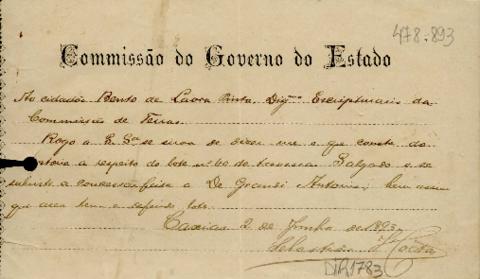 478-893
Commissão do Governo do Estado
Ao cidadão Bento de Lavra Pinto, Dig.mo Escripturario da
Commissão de Terras.
Rogo a E. S.a se sirva de dizer me o que consta do
a respeito do lote nº 60 do travessão Salgado e se
subsiste a concessão feita a De Grandi Antonio; bem assim
que area tem o referido lote.
Caxias 2 de Junho de 1893
Sebastião
DIR1783